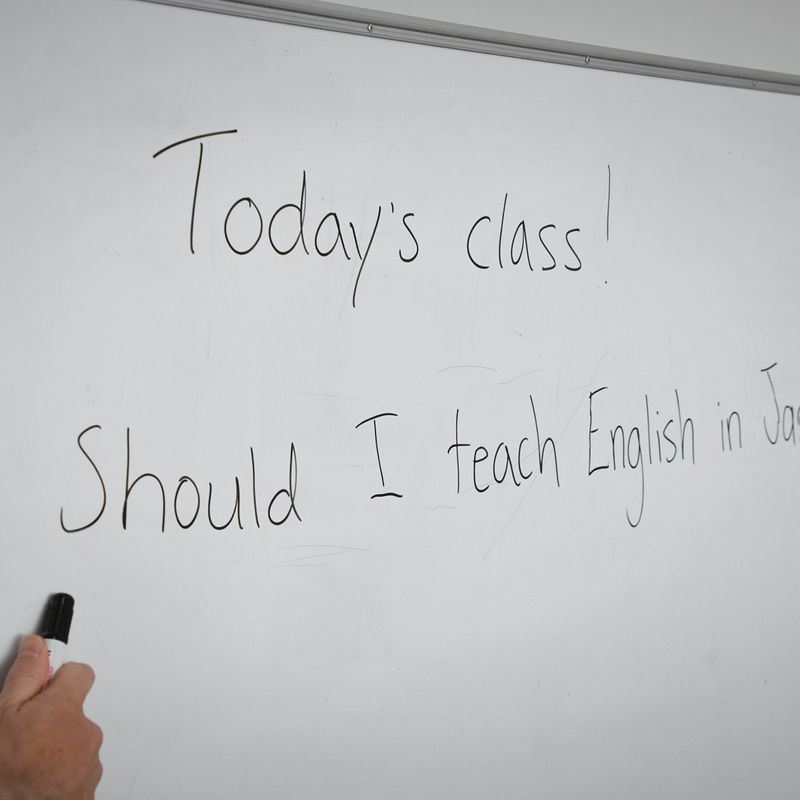 Today's class!
Should I teach English in